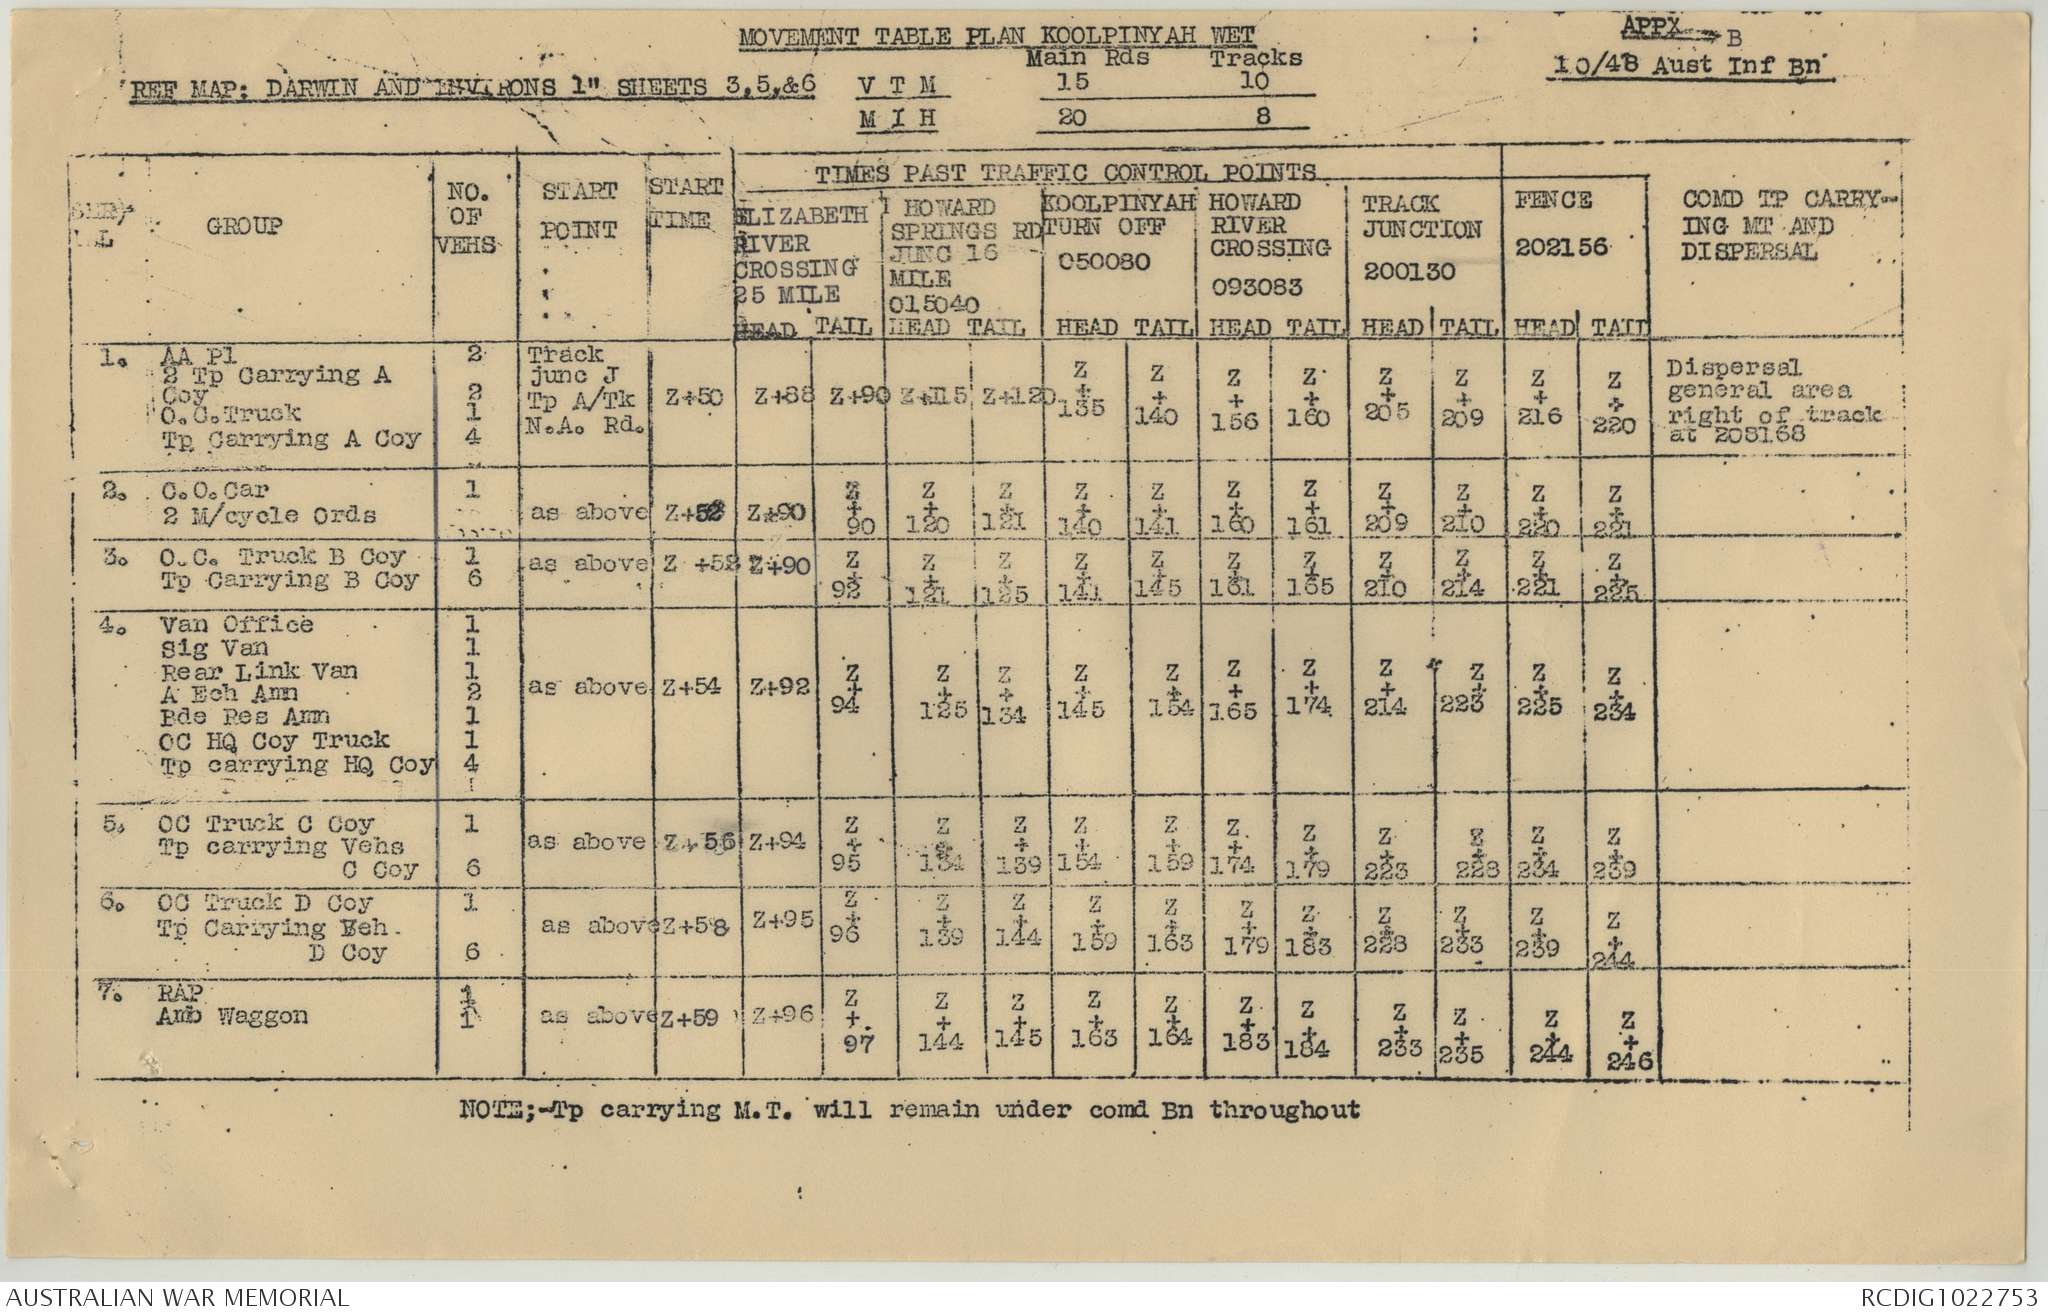 MOVEMENT TABLE PLAN KOOLPINYAH WET
APPX B
10/48 Aust Inf Bn
Main Rds Tracks
REF MAP: DARWIN AND ENVIRONS 1" SHEETS 3,5,&6 V T M 15 10
M I H 20 8
TIMES PAST TRAFFIC CONTROL POINTS
GROUP
NO. OF VEHS
START POINT
START TIME
ELIZABETH RIVER CROSSING 25 MILE
HOWARD SPRINGS RD JUNC 16 MILE 015040
KOOLPINYAH TURN OFF 050080
HOWARD RIVER CROSSING 093083
TRACK JUNCTION 200130
FENCE 202156
COMD TP CARRY-
ING MT AND
DISPERSAL
HEAD TAIL HEAD TAIL HEAD TAIL HEAD TAIL HEAD TAIL HEAD TAIL
1. AA Pl 2 Track
2 Tp Carrying A junc J
Coy 2 Tp A/Tk Z+50 Z+88 Z+90 Z+115 Z+120 Z+135 Z+140 Z+156 Z+160 Z+205 Z+209 Z+216 Z+220
O.C.Truck 1 N.A. Rd.
Tp Carrying A Coy 4
Dispersal
general area
right of track
at 208168
2. C.O.Car 1
2 M/cycle Ords as above Z+52 Z+90 Z+90 Z+120 Z+121 Z+140 Z+141 Z+160 Z+161 Z+209 Z+210 Z+220 Z+221
3. O.C. Truck B Coy 1 as above Z +52 Z+90 Z+92 Z+121 Z+125 Z+141 Z+145 Z+161 Z+165 Z+210 Z+214 Z+221 Z+225
Tp Carrying B Coy 6
4. Van Office 1
Sig Van 1
Rear Link Van 1
A Ech Amn 2 as above Z+54 Z+92 Z+94 Z+125 Z+134 Z+145 Z+154 Z+165 Z+174 Z+214 Z+223 Z+225 Z+234
Bde Res Amn 1
OC HQ Coy Truck 1
Tp carrying HQ Coy 4
5. OC Truck C Coy 1
Tp carrying Vehs as above Z+56 Z+94 Z+95 Z+134 Z+139 Z+154 Z+159 Z+174 Z+179 Z+223 Z+228 Z+234 Z+239
C Coy 6
6. OC Truck D Coy 1
Tp Carrying Veh. as above Z+58 Z+95 Z+96 Z+139 Z+144 Z+159 Z+163 Z+179 Z+183 Z+228 Z+233 Z+239 Z+244
D Coy 6
7. RAP 1
Amb Waggon 1 as above Z+59 Z+96 Z+97 Z+144 Z+145 Z+163 Z+164 Z+183 Z+184 Z+233 Z+235 Z+244 Z+246
NOTE;-Tp carrying M.T. will remain under comd Bn throughout
AUSTRALIAN WAR MEMORIAL
RCDIG1022753